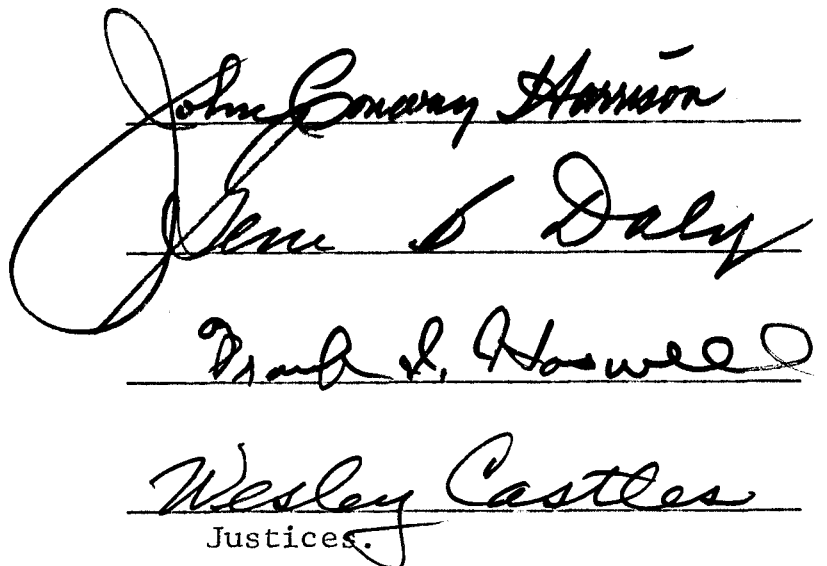 John Conway Harrison
Gene B Daly
Frank I. Haswell
Wesley Castles
Justices.